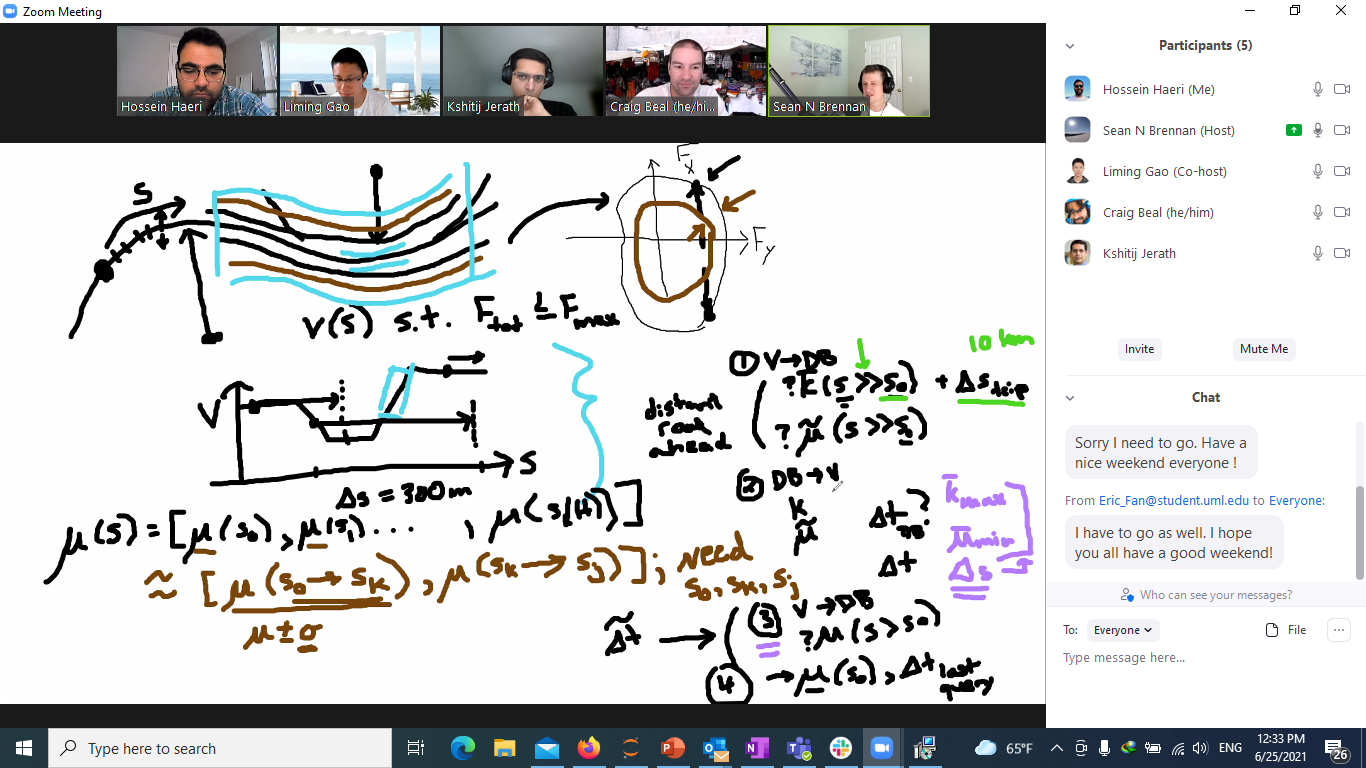 Zoom Meeting
Hossein Haeri
Liming Gao
Kshitij Jerath
Craig Beal (he/hi...
Sean N Brennan
S
Fx
Fy
V(s) s.t. Ftot ≤ Fmax
V
S
Δs = 300m
μ(s) = [μ(s₀), μ(s₁) ... , μ(s(H))]
≈ [μ(s₀→sₖ), μ(sₖ→sⱼ)]; need
s₀, sₖ, sⱼ
μ ± σ
distant
road
ahead
① V→DB
10 km
? k (s >> s₀) + Δs trip
? μ̃ (s >> s₀)
② DB→V
k
μ̃
Δt DB?
Δt
k̄max
μ̄min
Δs
Δ̃t → ③ V→DB
? μ(s > s₀)
④ → μ(s₀), Δt last query
Participants (5)
Hossein Haeri (Me)
Sean N Brennan (Host)
Liming Gao (Co-host)
Craig Beal (he/him)
Kshitij Jerath
Invite
Mute Me
Chat
Sorry I need to go. Have a
nice weekend everyone !
From Eric_Fan@student.uml.edu to Everyone:
I have to go as well. I hope
you all have a good weekend!
Who can see your messages?
To: Everyone
File
...
Type message here...
Type here to search
65°F
ENG
12:33 PM
6/25/2021
26